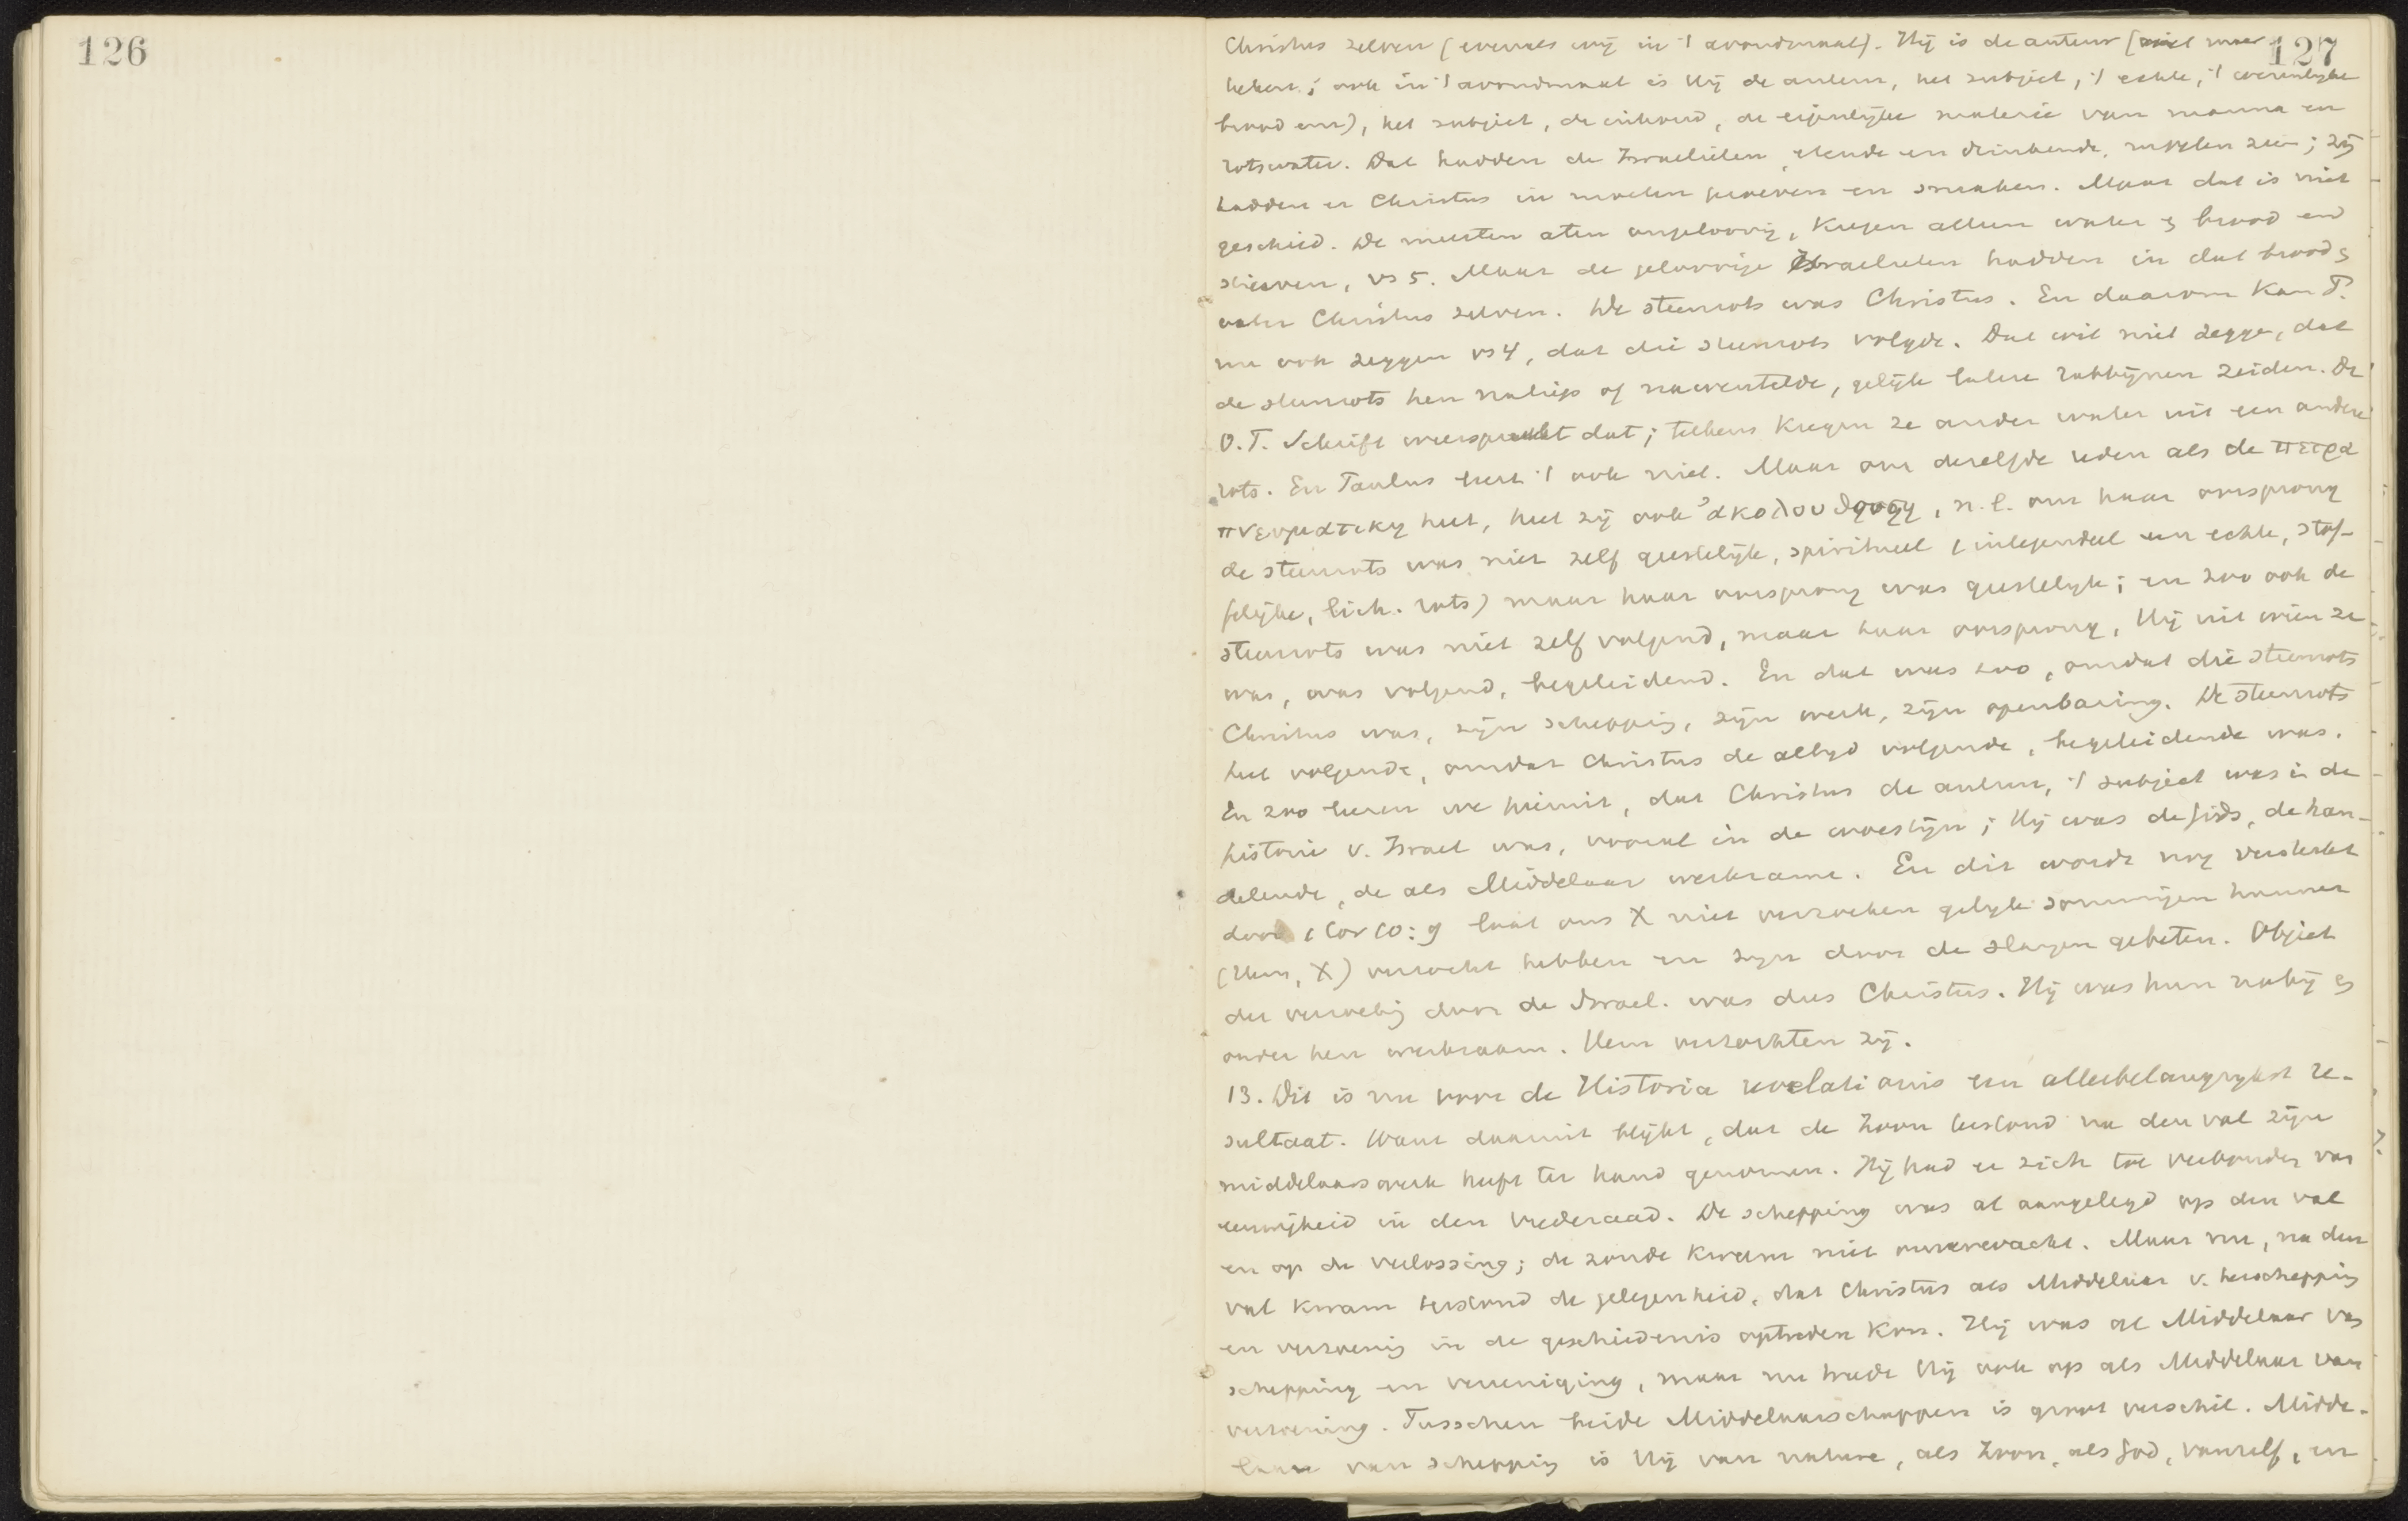 126
127
Christus zelven (evenals wij in 't avondmaal). Hij is de auteur (niet maar
teken; ook in 't avondmaal is Hij de auteur, het subject, 't echte, 't wezenlijke
brood enz), het subject, de inhoud, de eigenlijke materie van manna en
rotswater. Dat hadden de Israelieten, etende en drinkende, moeten zien; zij
hadden er Christus in moeten proeven en smaken. Maar dat is niet
geschied. De meesten aten ongeloovig, kregen alleen water en brood en
stierven, vs 5. Maar de geloovige Israelieten hadden in dat brood en
water Christus zelven. De steenrots was Christus. En daarom kan P.
nu ook zeggen vs 4, dat die steenrots volgde. Dat wil niet zeggen, dat
de steenrots hen naliep of nawentelde, gelijk latere rabbijnen zeiden. De
O.T. Schrift weerspreekt dat; telkens kregen ze ander water uit een andere
rots. En Paulus leert 't ook niet. Maar om dezelfde reden als de πετρα
πνευματικη heet, heet zij ook ἀκολουθουση, n.l. om haar oorsprong
de steenrots was niet zelf geestelijk, spiritueel (integendeel een echte, stof-
felijke, lich. rots) maar haar oorsprong was geestelijk; en zoo ook de
steenrots was niet zelf volgend, maar haar oorsprong, Hij uit wien ze
was, was volgend, begeleidend. En dat was zoo, omdat die steenrots
Christus was, zijn schepping, zijn werk, zijn openbaring. De steenrots
heet volgende, omdat Christus de altijd volgende, begeleidende was.
En zoo leeren we hieruit, dat Christus de auteur, 't subject was in de
historie v. Israel was, vooral in de woestijn; Hij was de gids, de han-
delende, de als Middelaar werkzame. En dit wordt nog versterkt
door 1 Cor 10:9 laat ons X niet verzoeken gelijk sommigen hunner
(Hem, X) verzocht hebben en zijn door de slangen gebeten. Object
der verzoeking door de Israel. was dus Christus. Hij was hun nabij en
onder hen werkzaam. Hem verzochten zij.
13. Dit is nu voor de Historia revelationis een allerbelangrijkst re-
sultaat. Want daaruit blijkt, dat de Zoon terstond na den val zijn
middelaarswerk heeft ter hand genomen. Hij had er zich toe verbonden van
eeuwigheid in den vrederaad. De schepping was al aangelegd op den val
en op de verlossing; de zonde kwam niet onverwacht. Maar nu, na den
val kwam terstond de gelegenheid, dat Christus als Middelaar v. herschepping
en verzoening in de geschiedenis optreden kon. Hij was al Middelaar van
schepping en vereeniging, maar nu trede Hij ook op als Middelaar van
verzoening. Tusschen beide Middelaarschappen is groot verschil. Midde-
laar van schepping is Hij van nature, als Zoon, als God, vanzelf, en